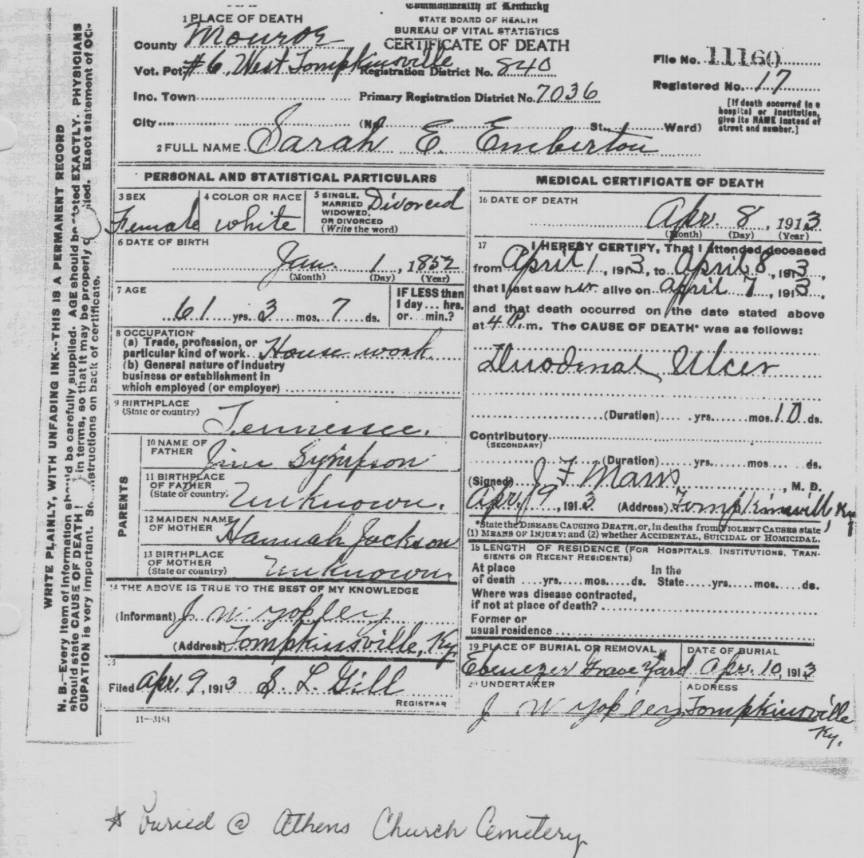 Commonwealth of Kentucky
STATE BOARD OF HEALTH
BUREAU OF VITAL STATISTICS
CERTIFICATE OF DEATH
1 PLACE OF DEATH
County Monroe
Vot. Pct. #6, West Tompkinsville Registration District No. 840
Inc. Town Primary Registration District No. 7036
City (No. St., Ward)
File No. 11160
Registered No. 17
[If death occurred in a
hospital or institution,
give its NAME instead of
street and number.]
2 FULL NAME Sarah E. Emberton
PERSONAL AND STATISTICAL PARTICULARS
3 SEX
Female
4 COLOR OR RACE
white
5 SINGLE,
MARRIED
WIDOWED,
OR DIVORCED
(Write the word)
Divorced
6 DATE OF BIRTH
Jan. 1, 1852
(Month) (Day) (Year)
7 AGE
61 yrs. 3 mos. 7 ds.
IF LESS than
1 day... hrs.
or... min.?
8 OCCUPATION
(a) Trade, profession, or
particular kind of work. House work
(b) General nature of industry
business or establishment in
which employed (or employer)
9 BIRTHPLACE
(State or country)
Tennessee.
PARENTS
10 NAME OF
FATHER
Jim Sympson
11 BIRTHPLACE
OF FATHER
(State or country)
Unknown.
12 MAIDEN NAME
OF MOTHER
Hannah Jackson
13 BIRTHPLACE
OF MOTHER
(State or country)
Unknown
14 THE ABOVE IS TRUE TO THE BEST OF MY KNOWLEDGE
(Informant) J. W.
(Address) Tompkinsville, Ky.
Filed Apr. 9, 1913 S. L. Gill
REGISTRAR
11-3184
MEDICAL CERTIFICATE OF DEATH
16 DATE OF DEATH
Apr. 8, 1913
(Month) (Day) (Year)
17 I HEREBY CERTIFY, That I attended deceased
from April 1, 1913, to April 8, 1913,
that I last saw her alive on April 7, 1913,
and that death occurred on the date stated above
at 4 .m. The CAUSE OF DEATH* was as follows:
Duodenal Ulcer
(Duration) yrs. mos. 10 ds.
Contributory
(SECONDARY)
(Duration) yrs. mos. ds.
(Signed) J F Marrs, M. D.
Apr 9, 1913 (Address) Tompkinsvill Ky
*State the DISEASE CAUSING DEATH, or, in deaths from VIOLENT CAUSES state
(1) MEANS OF INJURY; and (2) whether ACCIDENTAL, SUICIDAL OR HOMICIDAL.
18 LENGTH OF RESIDENCE (FOR HOSPITALS, INSTITUTIONS, TRAN-
SIENTS OR RECENT RESIDENTS)
At place In the
of death yrs. mos. ds. State yrs. mos. ds.
Where was disease contracted,
if not at place of death?
Former or
usual residence
19 PLACE OF BURIAL OR REMOVAL
Ebenezer Grave Yard
DATE OF BURIAL
Apr. 10, 1913
UNDERTAKER
J W
ADDRESS
Tompkinsville
Ky.
WRITE PLAINLY, WITH UNFADING INK--THIS IS A PERMANENT RECORD
N. B.--Every item of information should be carefully supplied. AGE should be stated EXACTLY. PHYSICIANS
should state CAUSE OF DEATH in terms, so that it may be properly Exact statement of OC-
CUPATION is very important. instructions on back of certificate.
* buried @ Athens Church Cemetery